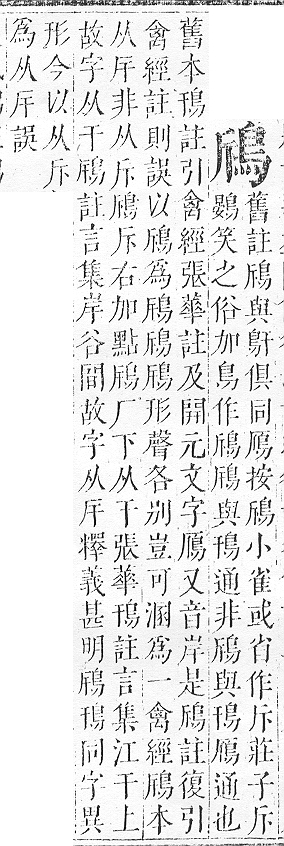 舊註與俱同鴈按小雀或省作斥莊子斥
鷃笑之俗加鳥作與鳱通非與鳱鴈通也
舊本鳱註引禽經張華註及開元文字鴈又音岸是註復引
禽經註則誤以為形聲各別豈可溷為一禽經本
从厈非从斥斥右加點厂下从干張華鳱註言集江干上
故字从干註言集岸谷間故字从厈釋義甚明鳱同字異
形今以从斥
為从厈誤